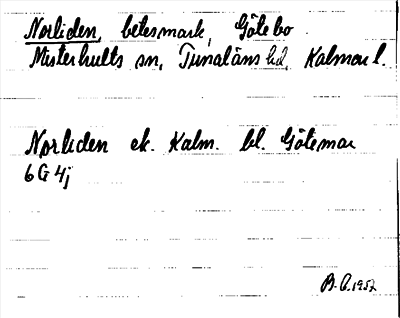 Norliden, betesmark, Götebo
Misterhults sn, Tunaläns hd, Kalmar l.
Norliden ek. Kalm. bl. Götemar
6G4j
B.G. 1952